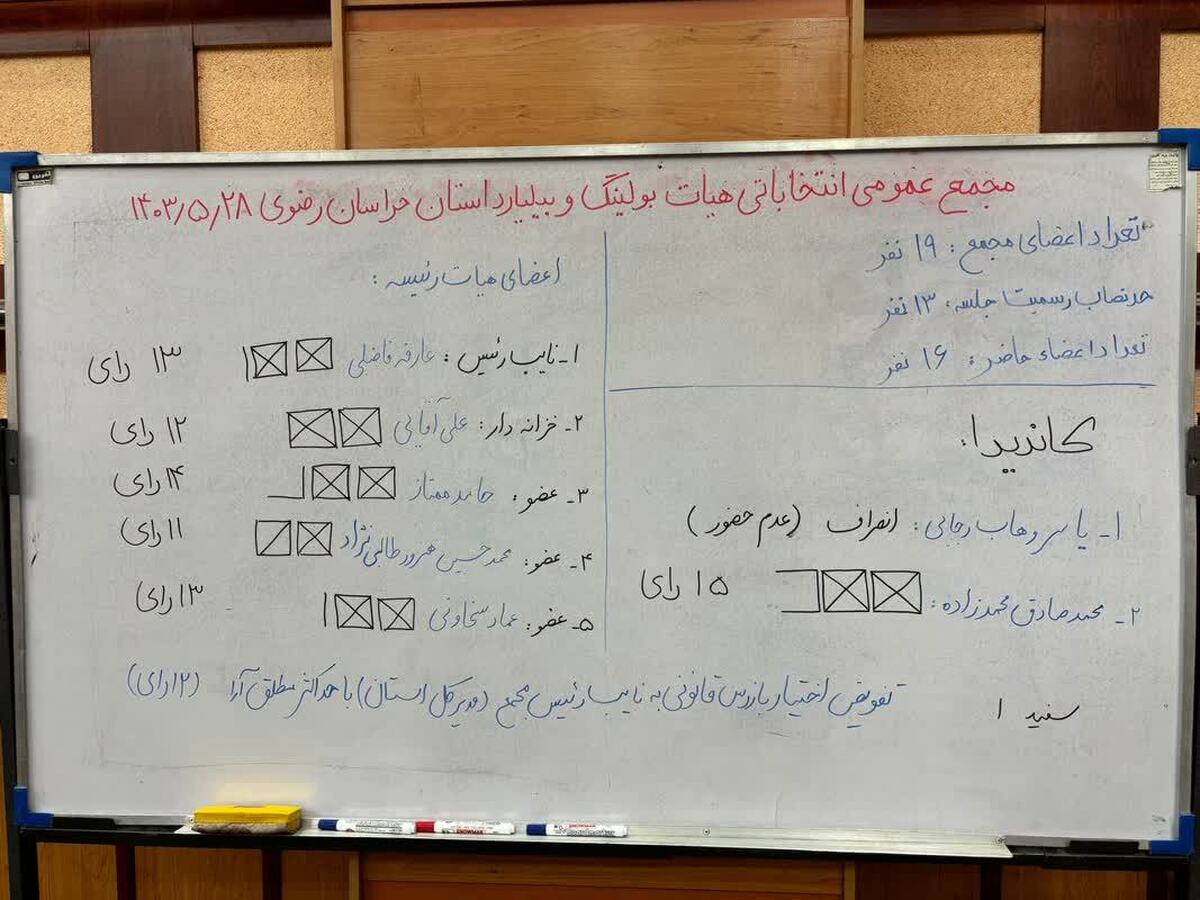 مجمع عمومی انتخاباتی هیات بولینگ و بیلیارد استان خراسان رضوی ۱۴۰۳/۵/۲۸
تعداد اعضای مجمع: ۱۹ نفر
حد نصاب رسمیت جلسه: ۱۳ نفر
تعداد اعضاء حاضر: ۱۶ نفر
کاندیدا:
۱- یاسر وهاب رجایی: انصراف (عدم حضور)
۲- محمد صادق محمدزاده: ۱۵ رای
سفید ۱
اعضای هیات رئیسه:
۱- نایب رئیس: عارفه فاضلی ۱۳ رای
۲- خزانه دار: علی آقایی ۱۲ رای
۳- عضو: حامد ممتاز ۱۴ رای
۴- عضو: محمد حسین طالبی نژاد ۱۱ رای
۵- عضو: عماد سخاوتی ۱۳ رای
تفویض اختیار بازرس قانونی به نایب رئیس مجمع (مدیرکل استان) با حداکثر مطلق آرا (۱۲ رای)
SNOWMAN